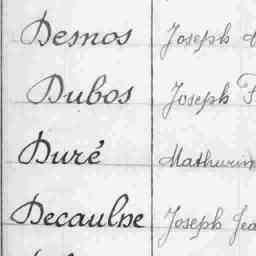 Desnos Joseph
Dubos Joseph
Duré Mathurin
Decaulne Joseph Jea